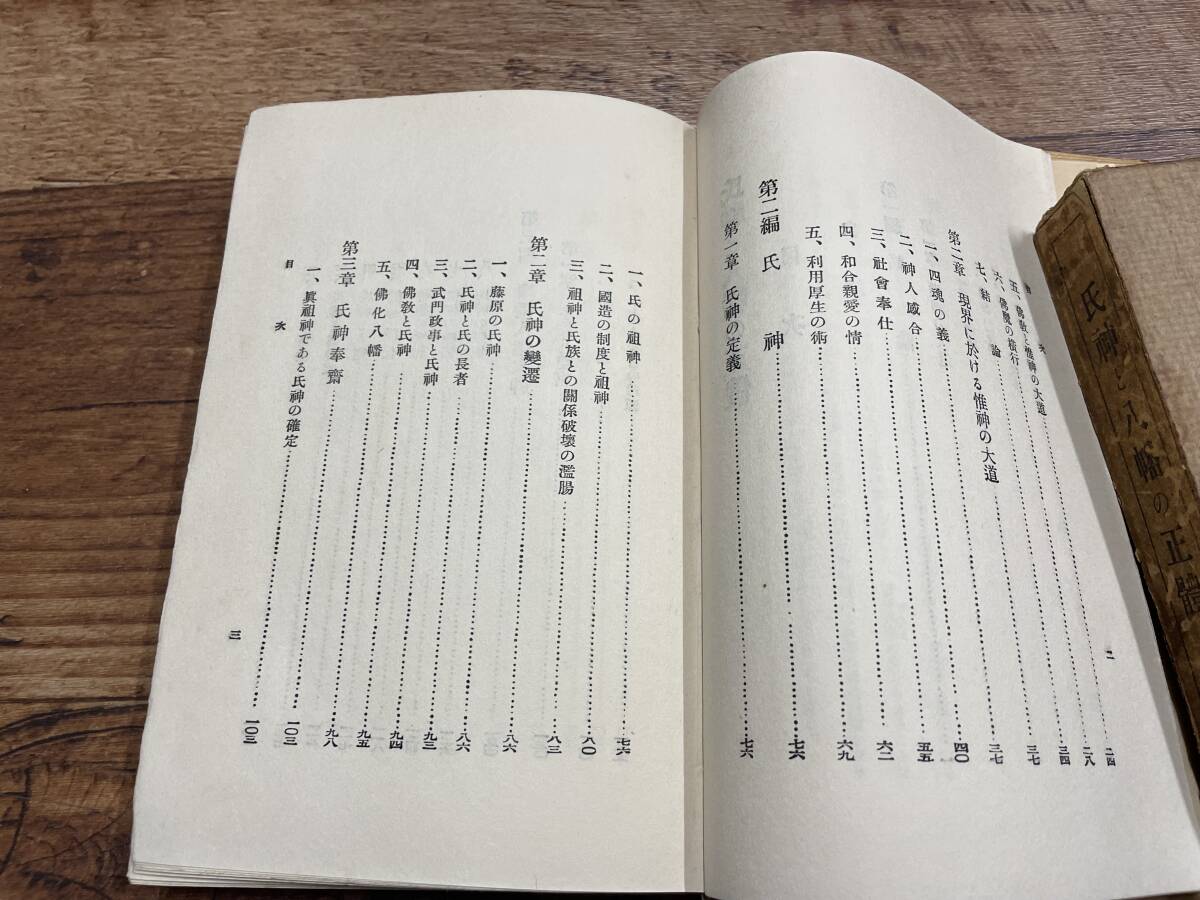 目次 二
五、佛教と惟神の大道……二四
六、佛魔の横行……二八
七、結論……三四
第二章 現界に於ける惟神の大道……三七
一、四魂の義……三七
二、神人感合……四〇
三、社會奉仕……五五
四、和合親愛の情……六二
五、利用厚生の術……六九
第二編 氏神……七六
第一章 氏神の定義……七六
一、氏の祖神……七六
二、國造の制度と祖神……八〇
三、祖神と氏族との關係破壞の濫膓……八三
第二章 氏神の變遷……八六
一、藤原の氏神……八六
二、氏神と氏の長者……九三
三、武門政事と氏神……九四
四、佛教と氏神……九五
五、佛化八幡……九八
第三章 氏神奉齋……一〇三
一、眞祖神である氏神の確定……一〇三
目次 三
氏神と八幡の正體